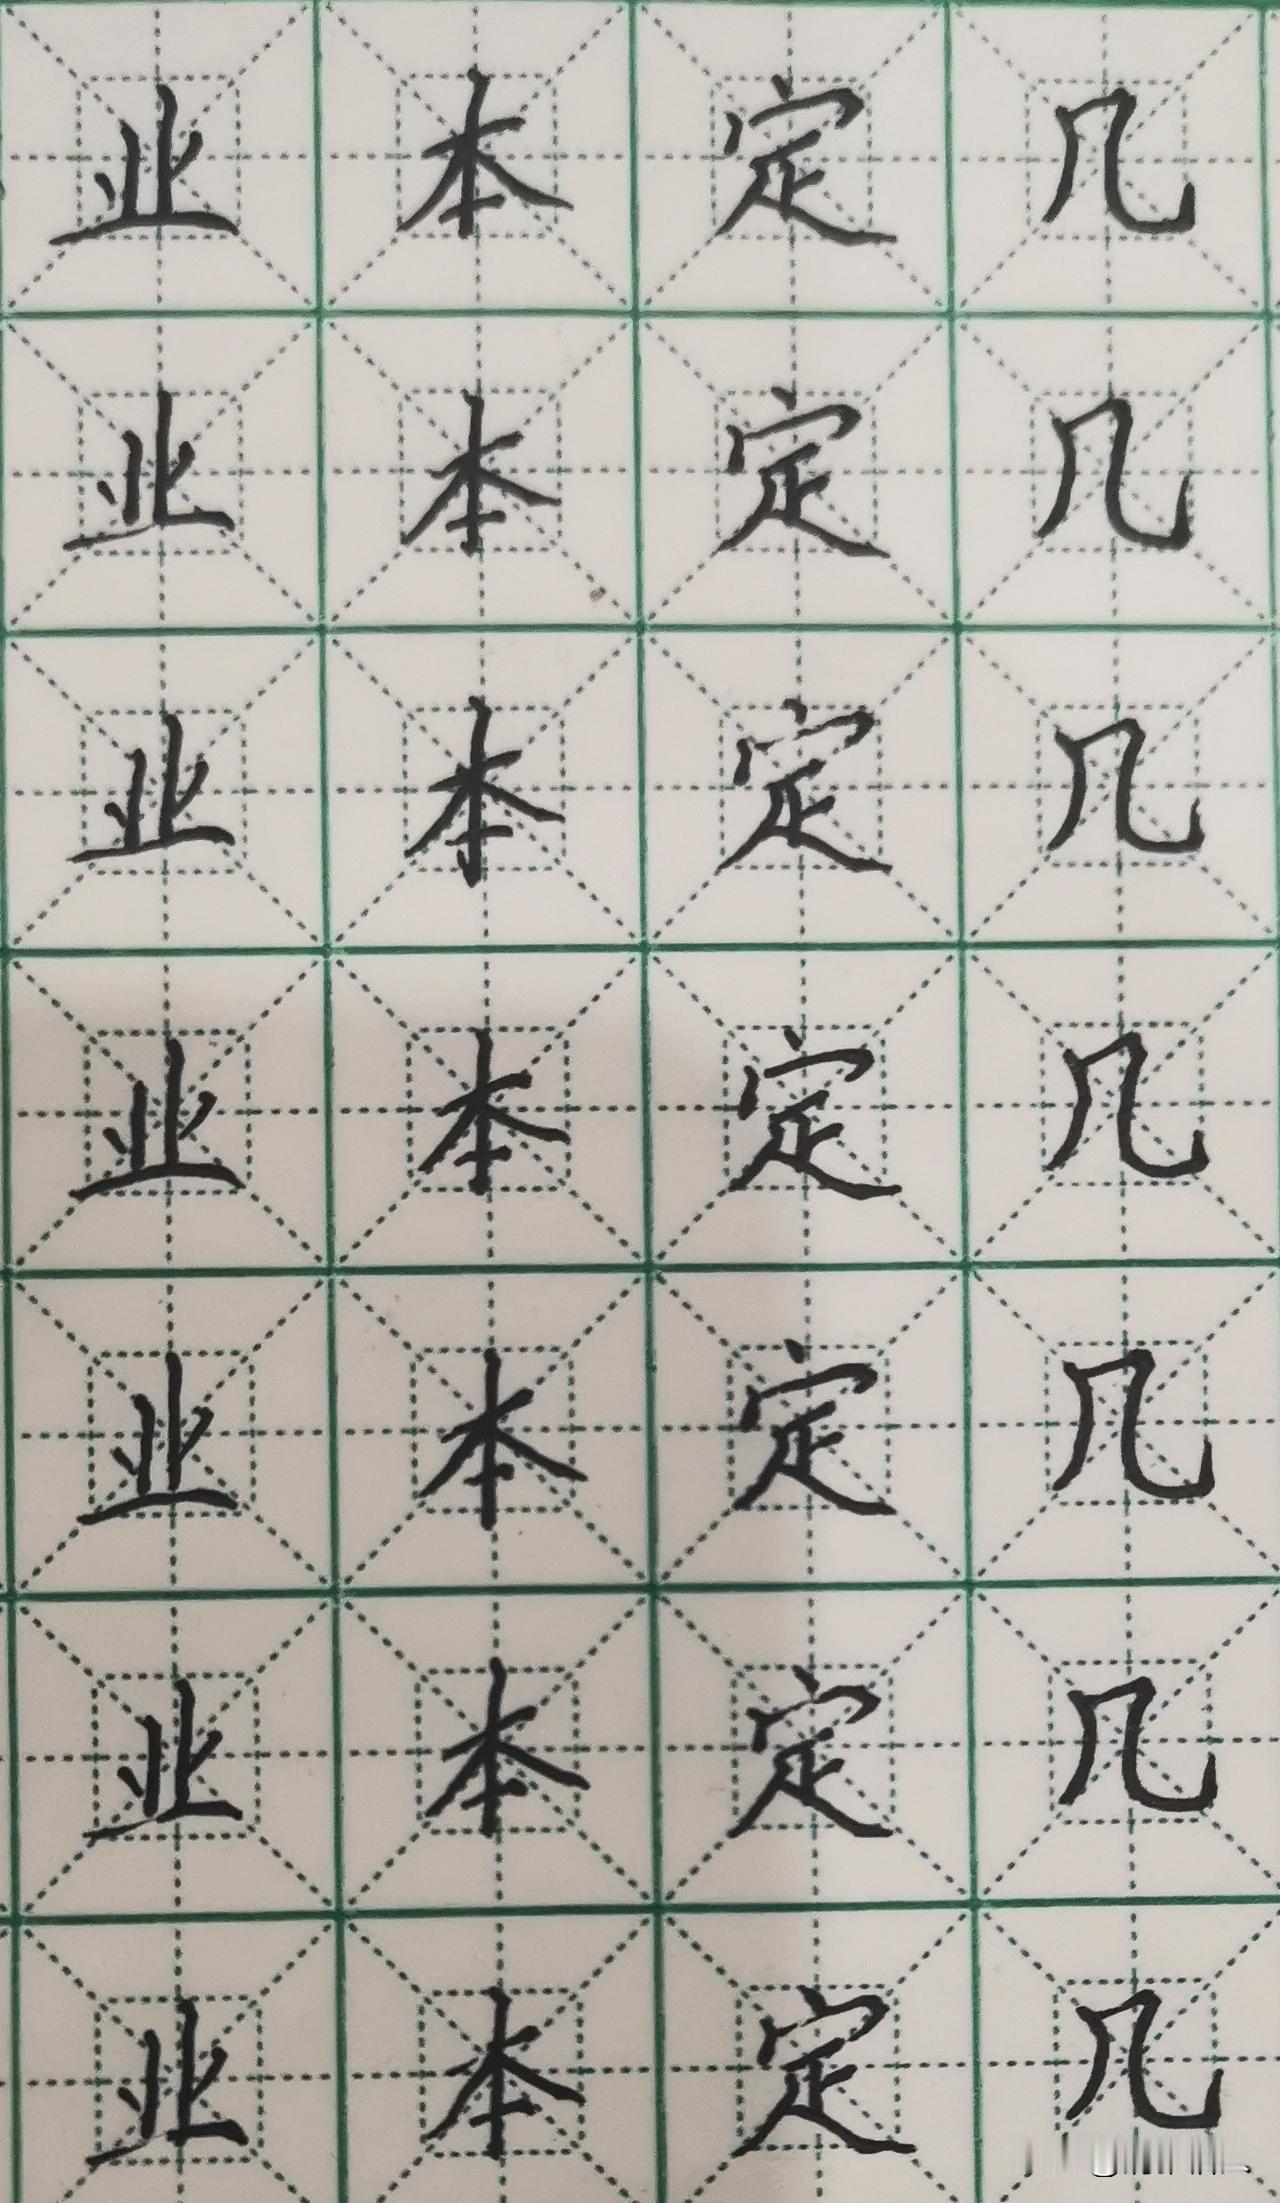 业本定几
业本定几
业本定几
业本定几
业本定几
业本定几
业本定几